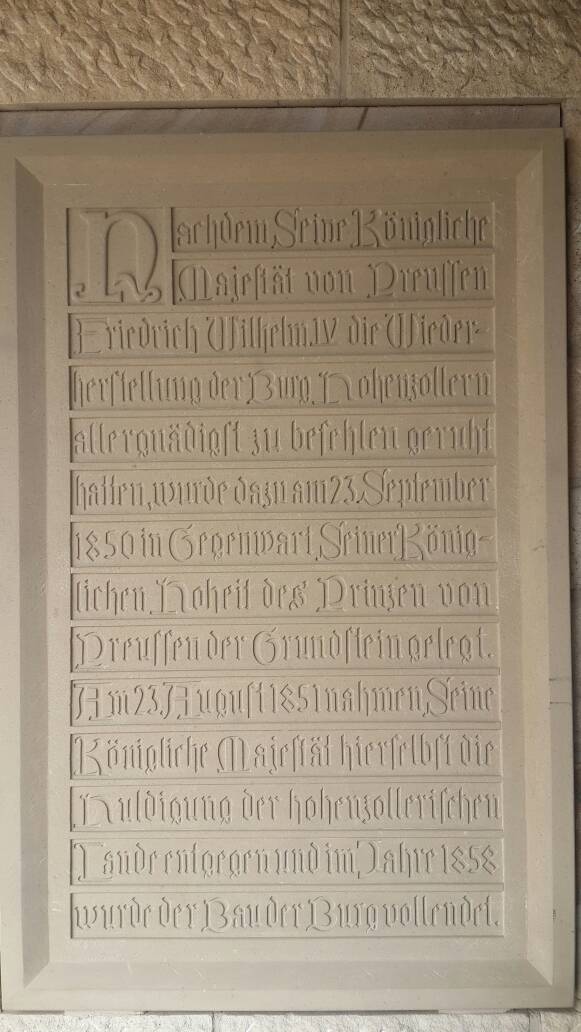 Nachdem Seine Königliche
Majestät von Preussen
Friedrich Wilhelm IV die Wieder-
herstellung der Burg Hohenzollern
allergnädigst zu befehlen geruht
hatten, wurde dazu am 23. September
1850 in Gegenwart Seiner König-
lichen Hoheit des Prinzen von
Preussen der Grundstein gelegt.
Am 23. August 1851 nahmen Seine
Königliche Majestät hierselbst die
Huldigung der hohenzollerischen
Lande entgegen und im Jahre 1858
wurde der Bau der Burg vollendet.